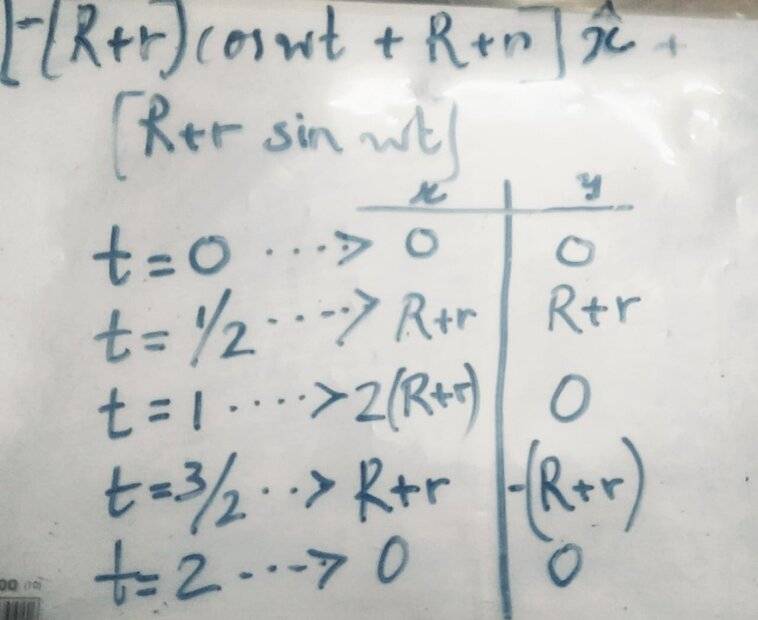 [-(R+r)cos wt + R+r] x̂ +
[R+r sin wt]
x | y
t=0 ....> 0 | 0
t=1/2 ....> R+r | R+r
t=1 ....> 2(R+r) | 0
t=3/2 ..> R+r | -(R+r)
t=2 ...> 0 | 0